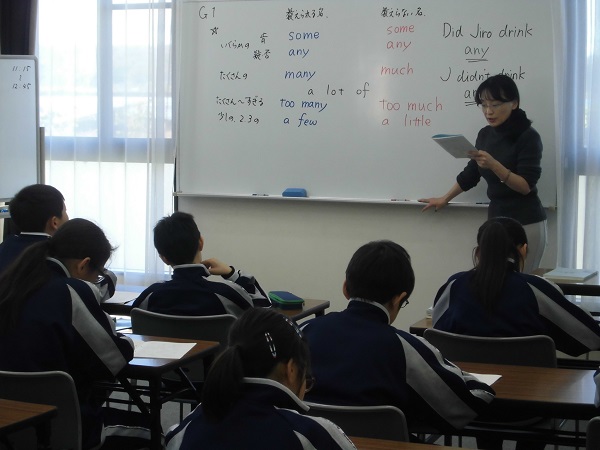 11:15
12:45
G1
数えられる名.
数えない名.
some
some
Did Jiro drink
いくらかの
any
any
any
たくさんの
many
much
I didn't drink
a lot of
たくさん〜すぎる
too many
too much
少しの、2,3の
a few
a little